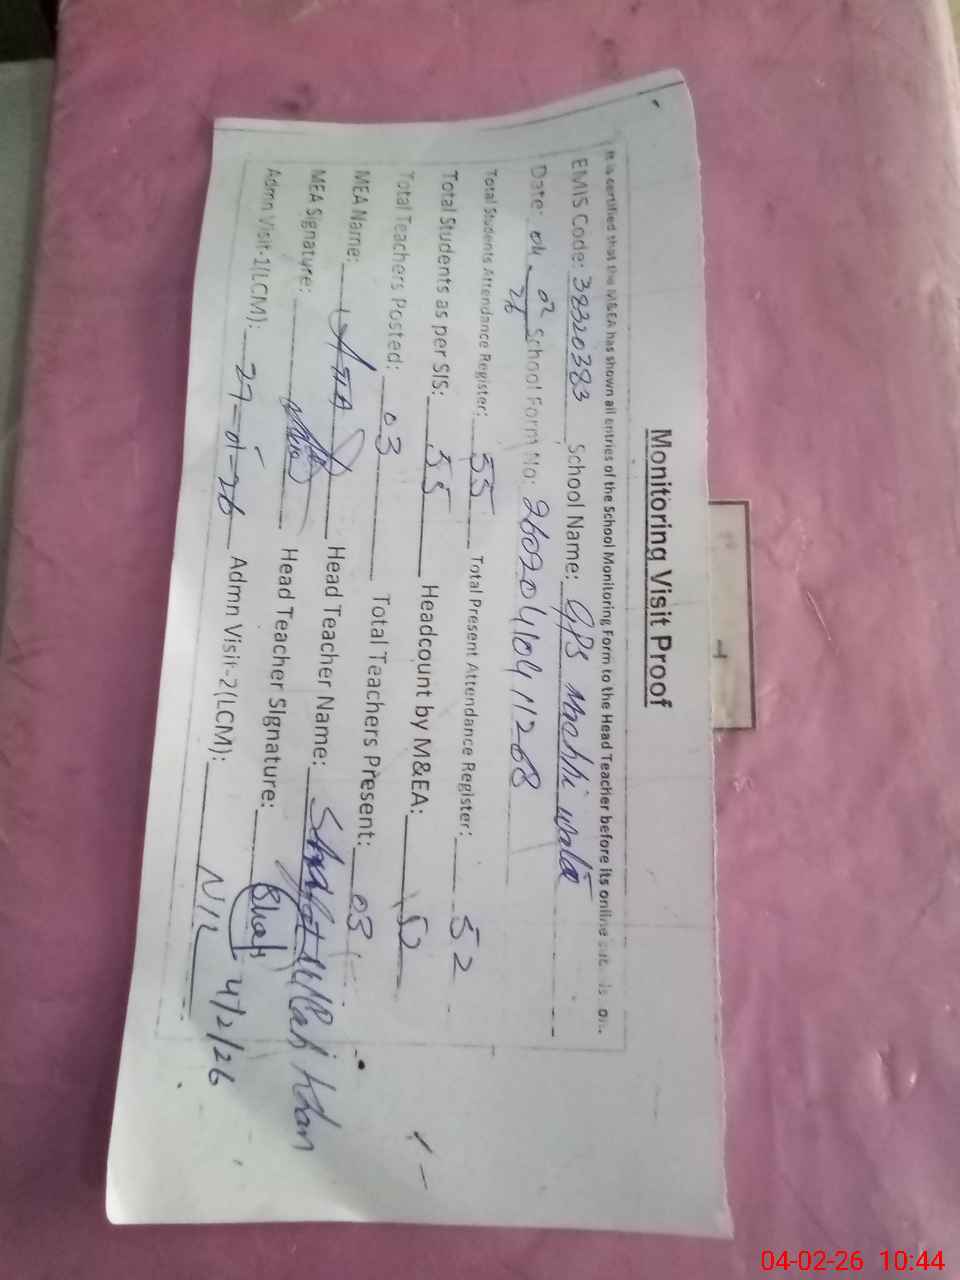 Monitoring Visit Proof
It is certified that the M&EA has shown all entries of the School Monitoring Form to the Head Teacher before its online
EMIS Code: 38320383 School Name: GPS Machhi wala
Date: 04 02 26 School Form No: 26020410411268
Total Students Attendance Register: 55 Total Present Attendance Register: 52
Total Students as per SIS: 55 Headcount by M&EA: 52
Total Teachers Posted: 03 Total Teachers Present: 03
MEA Name: Head Teacher Name: Khan
MEA Signature: Head Teacher Signature: 4/2/26
Admn Visit-1(LCM): 27-01-26 Admn Visit-2(LCM): NIL
04-02-26 10:44